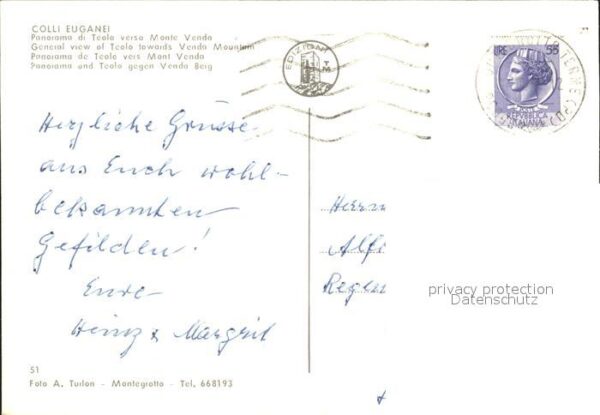 COLLI EUGANEI
Panorama di Teolo verso Monte Venda
General view of Teolo towards Venda Mountain
Panorama de Teolo vers Mont Venda
Panorama and Teolo gegen Venda Beig
EDIZIONI
TM
LIRE 55
REPUBBLICA
ITALIANA
TERME
Herzliche Grüsse
aus Euch wohl-
bekannten
Gefilden!
Eure
Heinz & Margrit
Herrn
Alf
Regen
privacy protection
Datenschutz
51
Foto A. Turlon - Montegrotto - Tel. 668193